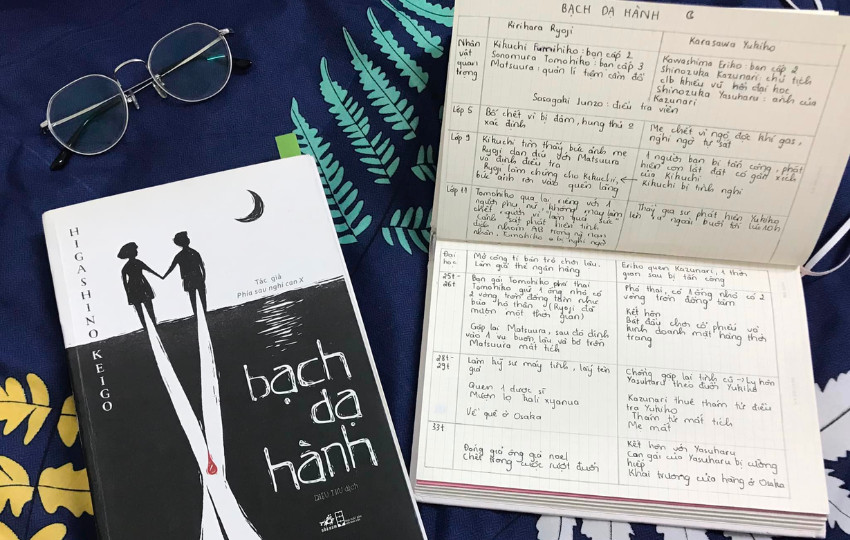 HIGASHINO KEIGO
Tác giả
Phía sau nghi can X
bạch
dạ
hành
DIỄU THƯ dịch
BẠCH DẠ HÀNH
Kirihara Ryoji
Karasawa Yukiho
Nhân
vật
quan
trọng
Kikuchi Fumihiko: bạn cấp 2
Sonomura Tomohiko: bạn cấp 3
Matsuura: quản lí tiệm cầm đồ
Kawashima Eriko: bạn cấp 2
Shinozuka Kazunari: chủ tịch
clb khiêu vũ hồi đại học
Shinozuka Yasuharu: anh của
Kazunari
Sasagaki Junzo: điều tra viên
Lớp 5
Bố chết vì bị đâm, hung thủ
xác định
Mẹ chết vì ngộ độc khí gas,
nghi ngờ tự sát
Lớp 9
Kikuchi tìm thấy bức ảnh mẹ
Ryoji dan díu với Matsuura
và định điều tra
Ryoji làm chứng cho Kikuchi,
bức ảnh rơi vào quên lãng
1 người bạn bị tấn công, phát
hiện con lật đật có gắn xích
của Kikuchi
Kikuchi bị tình nghi
Lớp 11
Tomohiko qua lại riêng với 1
người phụ nữ, không may làm
chết người vì làm quá sức
Cảnh sát phát hiện tinh
dịch nhóm AB trong
nhân, Tomohiko bị nghi ngờ
Thầy gia sư phát hiện Yukiho
Đại
học
Mở công ti bán trò chơi lậu.
Làm giả thẻ ngân hàng
Eriko quen Kazunari, 1 thời
gian sau bị tấn công
25t-
26t
Bạn gái Tomohiko phá thai
Tomohiko giữ 1 ống nhỏ có
2 vòng tròn đồng tâm như
bùa hộ thân (Ryoji đã
mượn một thời gian)
Gặp lại Matsuura, sau đó dính
vào 1 vụ buôn lậu và bỏ trốn
Matsuura mất tích
Phá thai, có 1 ống nhỏ có 2
vòng tròn đồng tâm
Kết hôn
Bắt đầu chơi cổ phiếu và
kinh doanh mặt hàng thời
trang
28t-
29t
Làm kỹ sư máy tính, lấy tên
giả
Quen 1 dược sĩ
Mượn lọ kali xyanua
Về quê ở Osaka
Chồng gặp lại tình cũ → ly hôn
Yasuharu theo đuổi Yukiho
Kazunari thuê thám tử điều
tra Yukiho
Thám tử mất tích
Mẹ mất
33t
Đóng giả ông già noel
Chết trong cuộc rượt đuổi
Kết hôn với Yasuharu
Con gái của Yasuharu bị cưỡng
hiếp
Khai trương cửa hàng ở Osaka